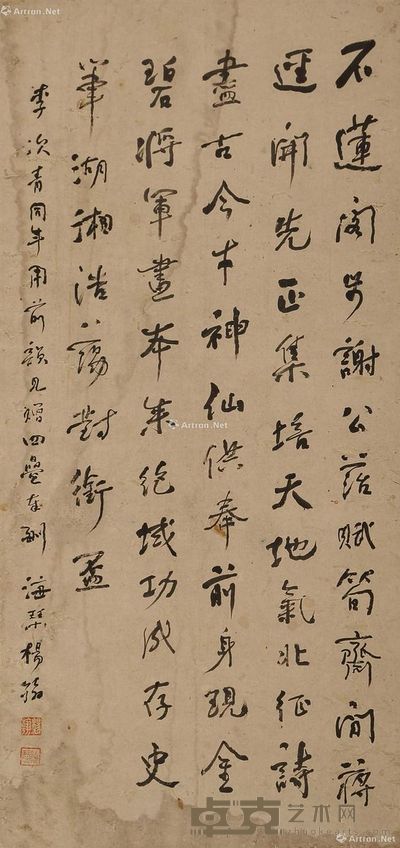 石蓮閣步謝公菭賦筍齋間蔣
逕開先正集培天地氣北征詩
盡古今才神仙供奉前身現金
碧將軍畫本來絕域功成存史
筆湖湘浩蕩對銜盃
李次青同年用前韻見贈四疊奉酬 海琴楊翰
Artron.Net
Artron.Net
Artron.Net
Artron.Net
Artron.Net
卓克艺术网